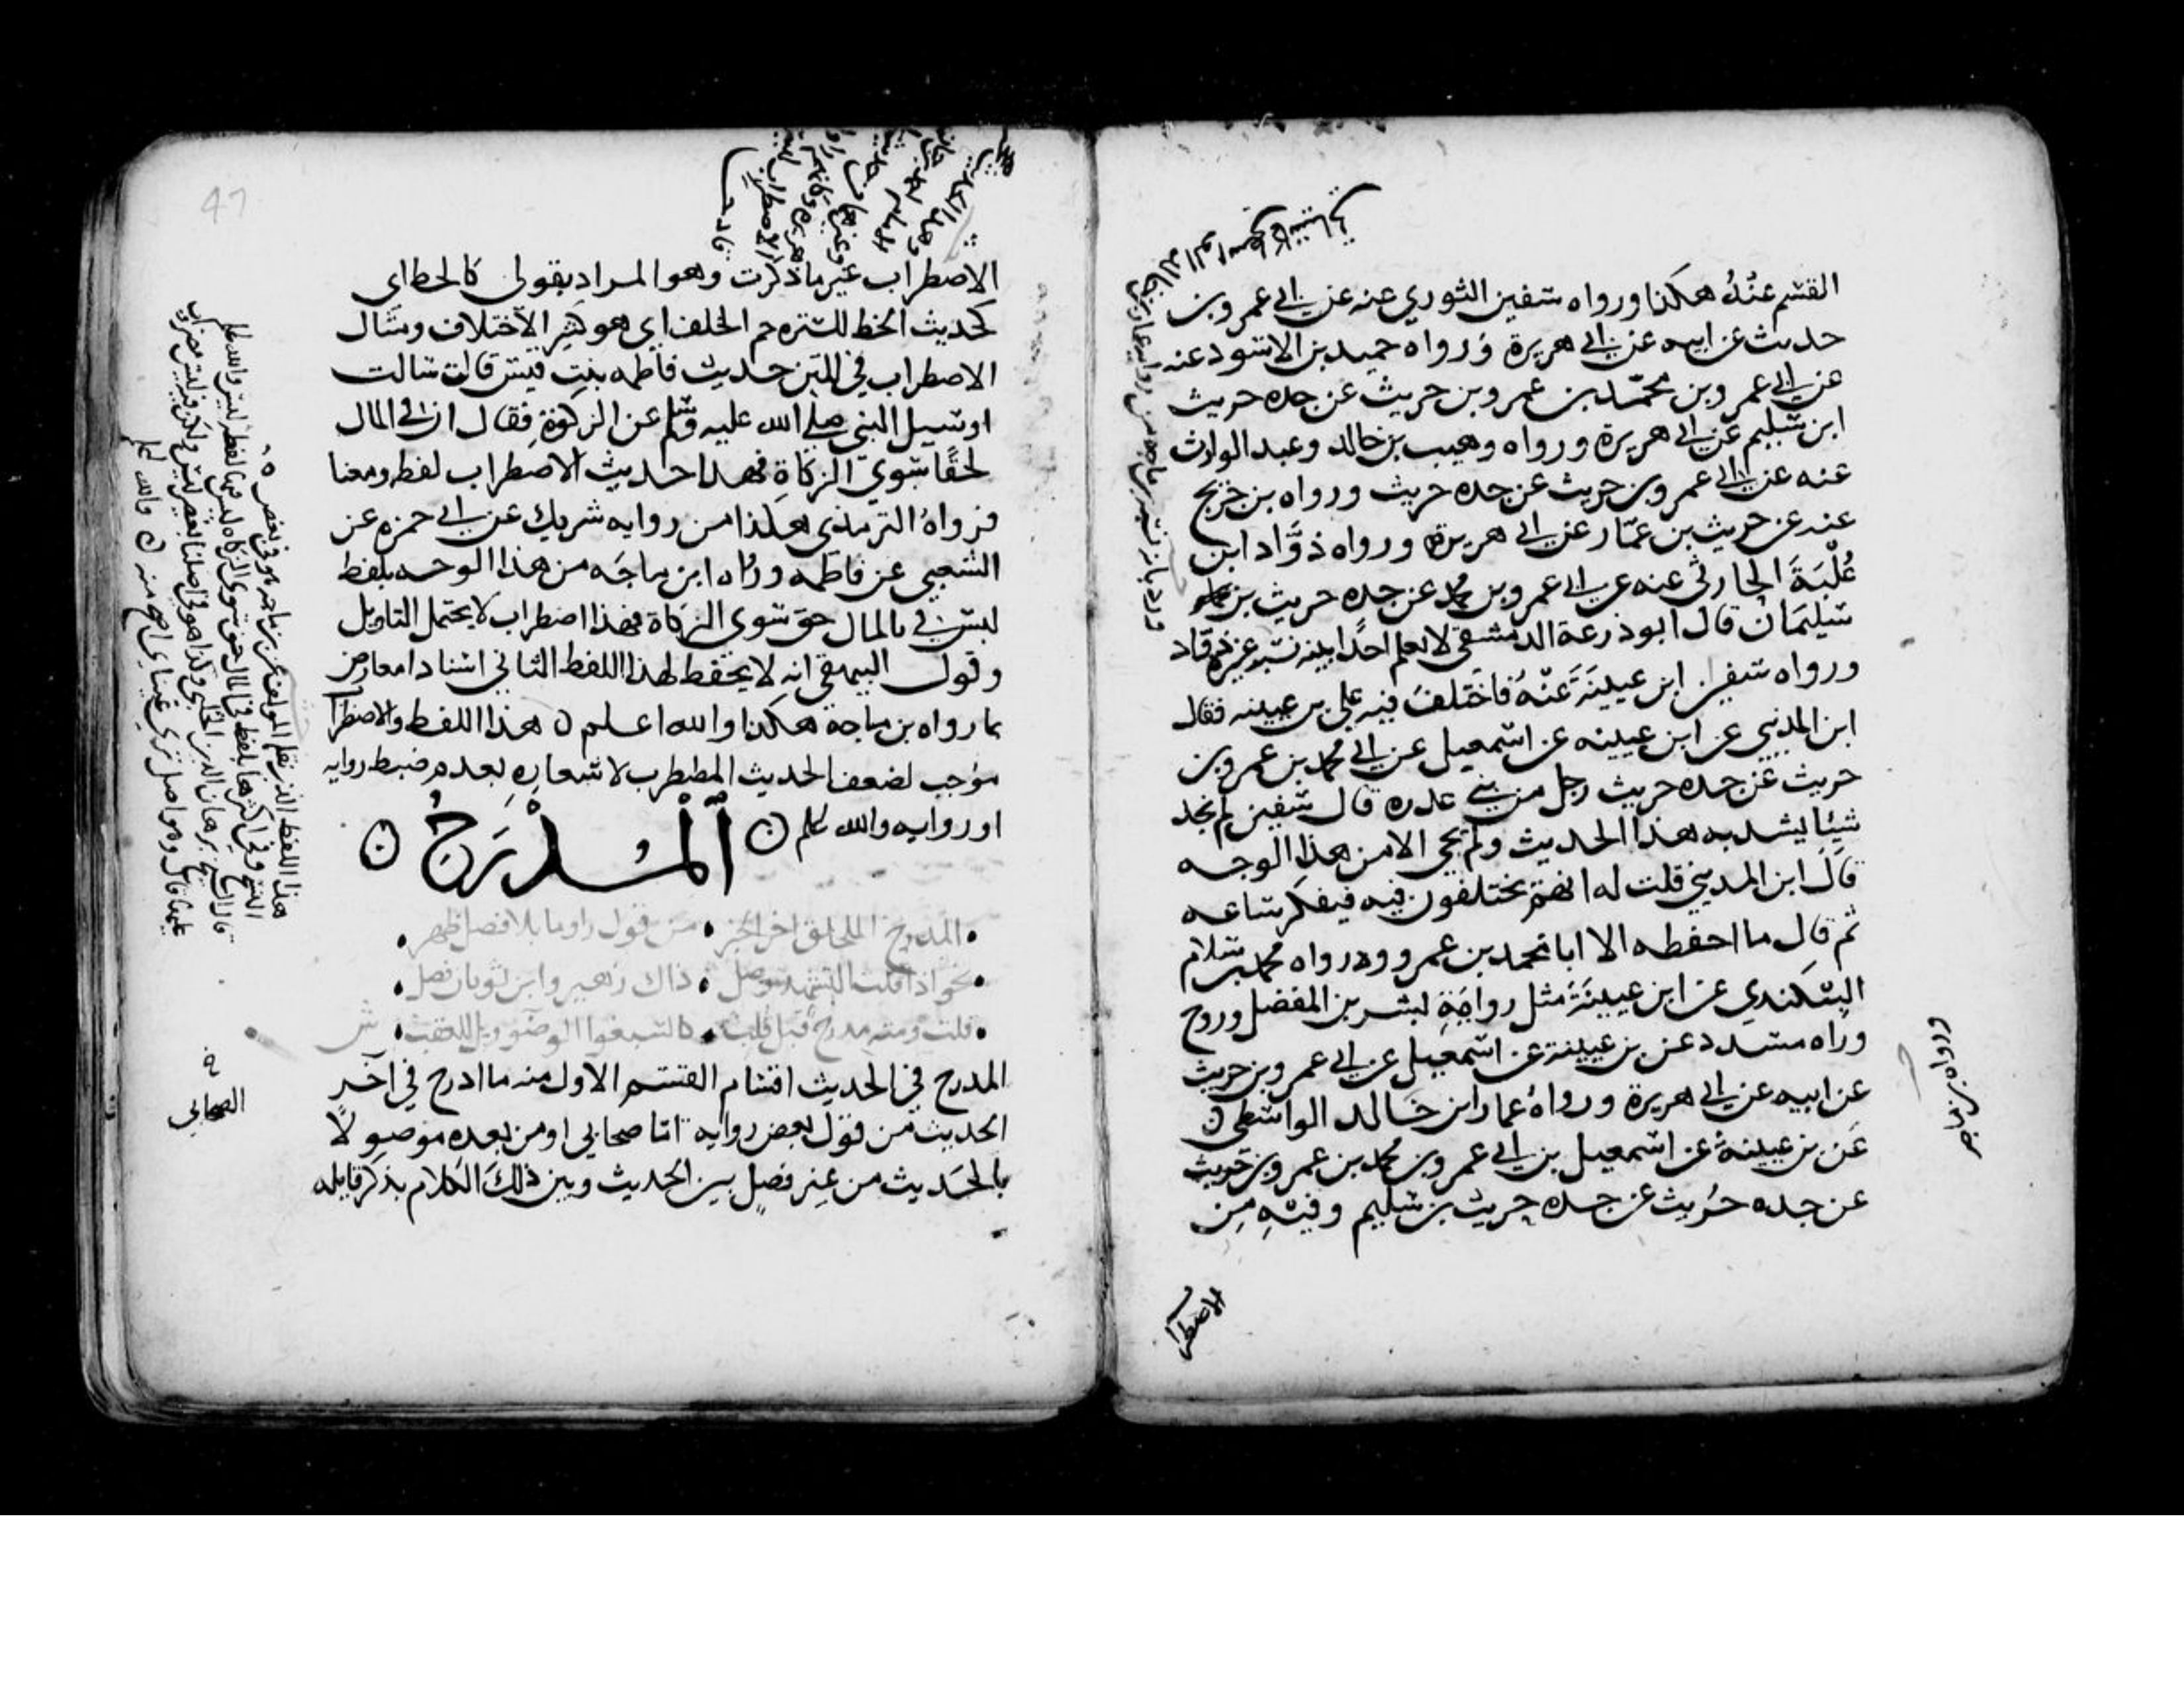 القسم عنه هكذا ورواه سفين الثوري عنه عن ابي عمرو بن
حديث عن ابيه عن ابي هريرة ورواه حميد بن الاسود عنه
عن ابي عمرو بن محمد بن عمرو بن حريث عن جده حريث
ابن سليم عن ابي هريرة ورواه وهيب بن خالد وعبد الوارث
عنه عن ابي عمرو بن حريث عن جده حريث ورواه بن جريج
عنه عن حريث بن عمار عن ابي هريرة ورواه ذواد ابن
علبة الحارثي عنه عن ابي عمرو بن محمد عن جده حريث بن
سليمان قال ابو زرعة الدمشقي لا نعلم احدا بينه نسبه غير ذواد
ورواه سفين ابن عيينة عنه فاختلف فيه علي بن عيينه فقال
ابن المديني عن ابن عيينه عن اسمعيل عن ابي محمد بن عمرو بن
حريث عن جده حريث رجل من بني عذره قال سفين لم نجد
شيئا يشد به هذا الحديث ولم يجي الا من هذا الوجه
قال ابن المديني قلت له انهم يختلفون فيه فيفكر ساعه
ثم قال ما احفظه الا ابا محمد بن عمرو ورواه محمد بن سلام
البيكندي عن ابن عيينة مثل رواية بشر بن المفضل وروح
وراه مسدد عن بن عيينة عن اسمعيل عن ابي عمرو بن حريث
عن ابيه عن ابي هريرة ورواه عمار ابن خالد الواسطي ن
عن بن عيينة عن اسمعيل بن ابي عمرو بن محمد بن عمرو بن حريث
عن جده حريث عن جده حريث بن سليم وفيه من
الاضطرا
ورواه بن ماجه
47
الاضطراب غير ما ذكرت وهو المراد بقولي كالخط اي
كحديث الخط للستره جم الخلف اي هو كثير الاختلاف ومثال
الاضطراب في المتن حديث فاطمه بنت قيس قالت سالت
او سيل النبي صلى الله عليه وسلم عن الزكوة فقال ان في المال
لحقا سوي الزكاة فهذا حديث الاضطراب لفظه ومعنا
فرواه الترمذي هكذا من روايه شريك عن ابي حمزه عن
الشعبي عن فاطمه ورواه ابن ماجه من هذا الوجه بلفظ
ليس في المال حق سوي الزكاة فهذا اضطراب لا يحتمل التاويل
وقول البيهقي انه لا يحفظ لهذا اللفظ الثاني اسنادا معارض
بما رواه بن ماجة هكذا والله اعلم ن هذا اللفظ والاضطرا
موجب لضعف الحديث المضطرب لاشعاره بعدم ضبط روايه
او روايه والله اعلم ن المُدْرَجُ ن
المدرج الملحق اخر الخبر • من قول راو ما بلا فصل ظهر •
نحو اذا قلت التشهد وصل • ذاك زهير وابن ثوبان فصل •
قلت ومنه مدرج قبل قلب • كاسبغوا الوضو ويل للعقب • ش
المدرج في الحديث اقسام القسم الاول منه ما ادرج في آخر
الحديث من قول بعض روايه اما صحابي او من بعده موصولا
بالحديث من غير فصل بين الحديث وبين ذلك الكلام بذكر قايله
الصحابي